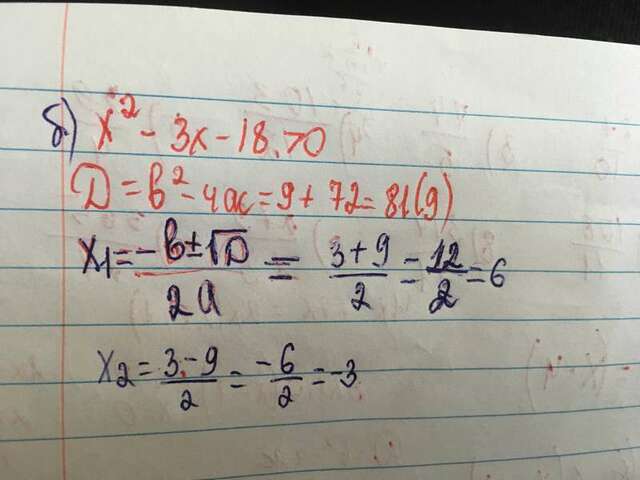 б) x² - 3x - 18 > 0
D = b² - 4ac = 9 + 72 = 81 (9)
x₁ = (-b ± √D) / 2a = (3 + 9) / 2 = 12 / 2 = 6
x₂ = (3 - 9) / 2 = -6 / 2 = -3